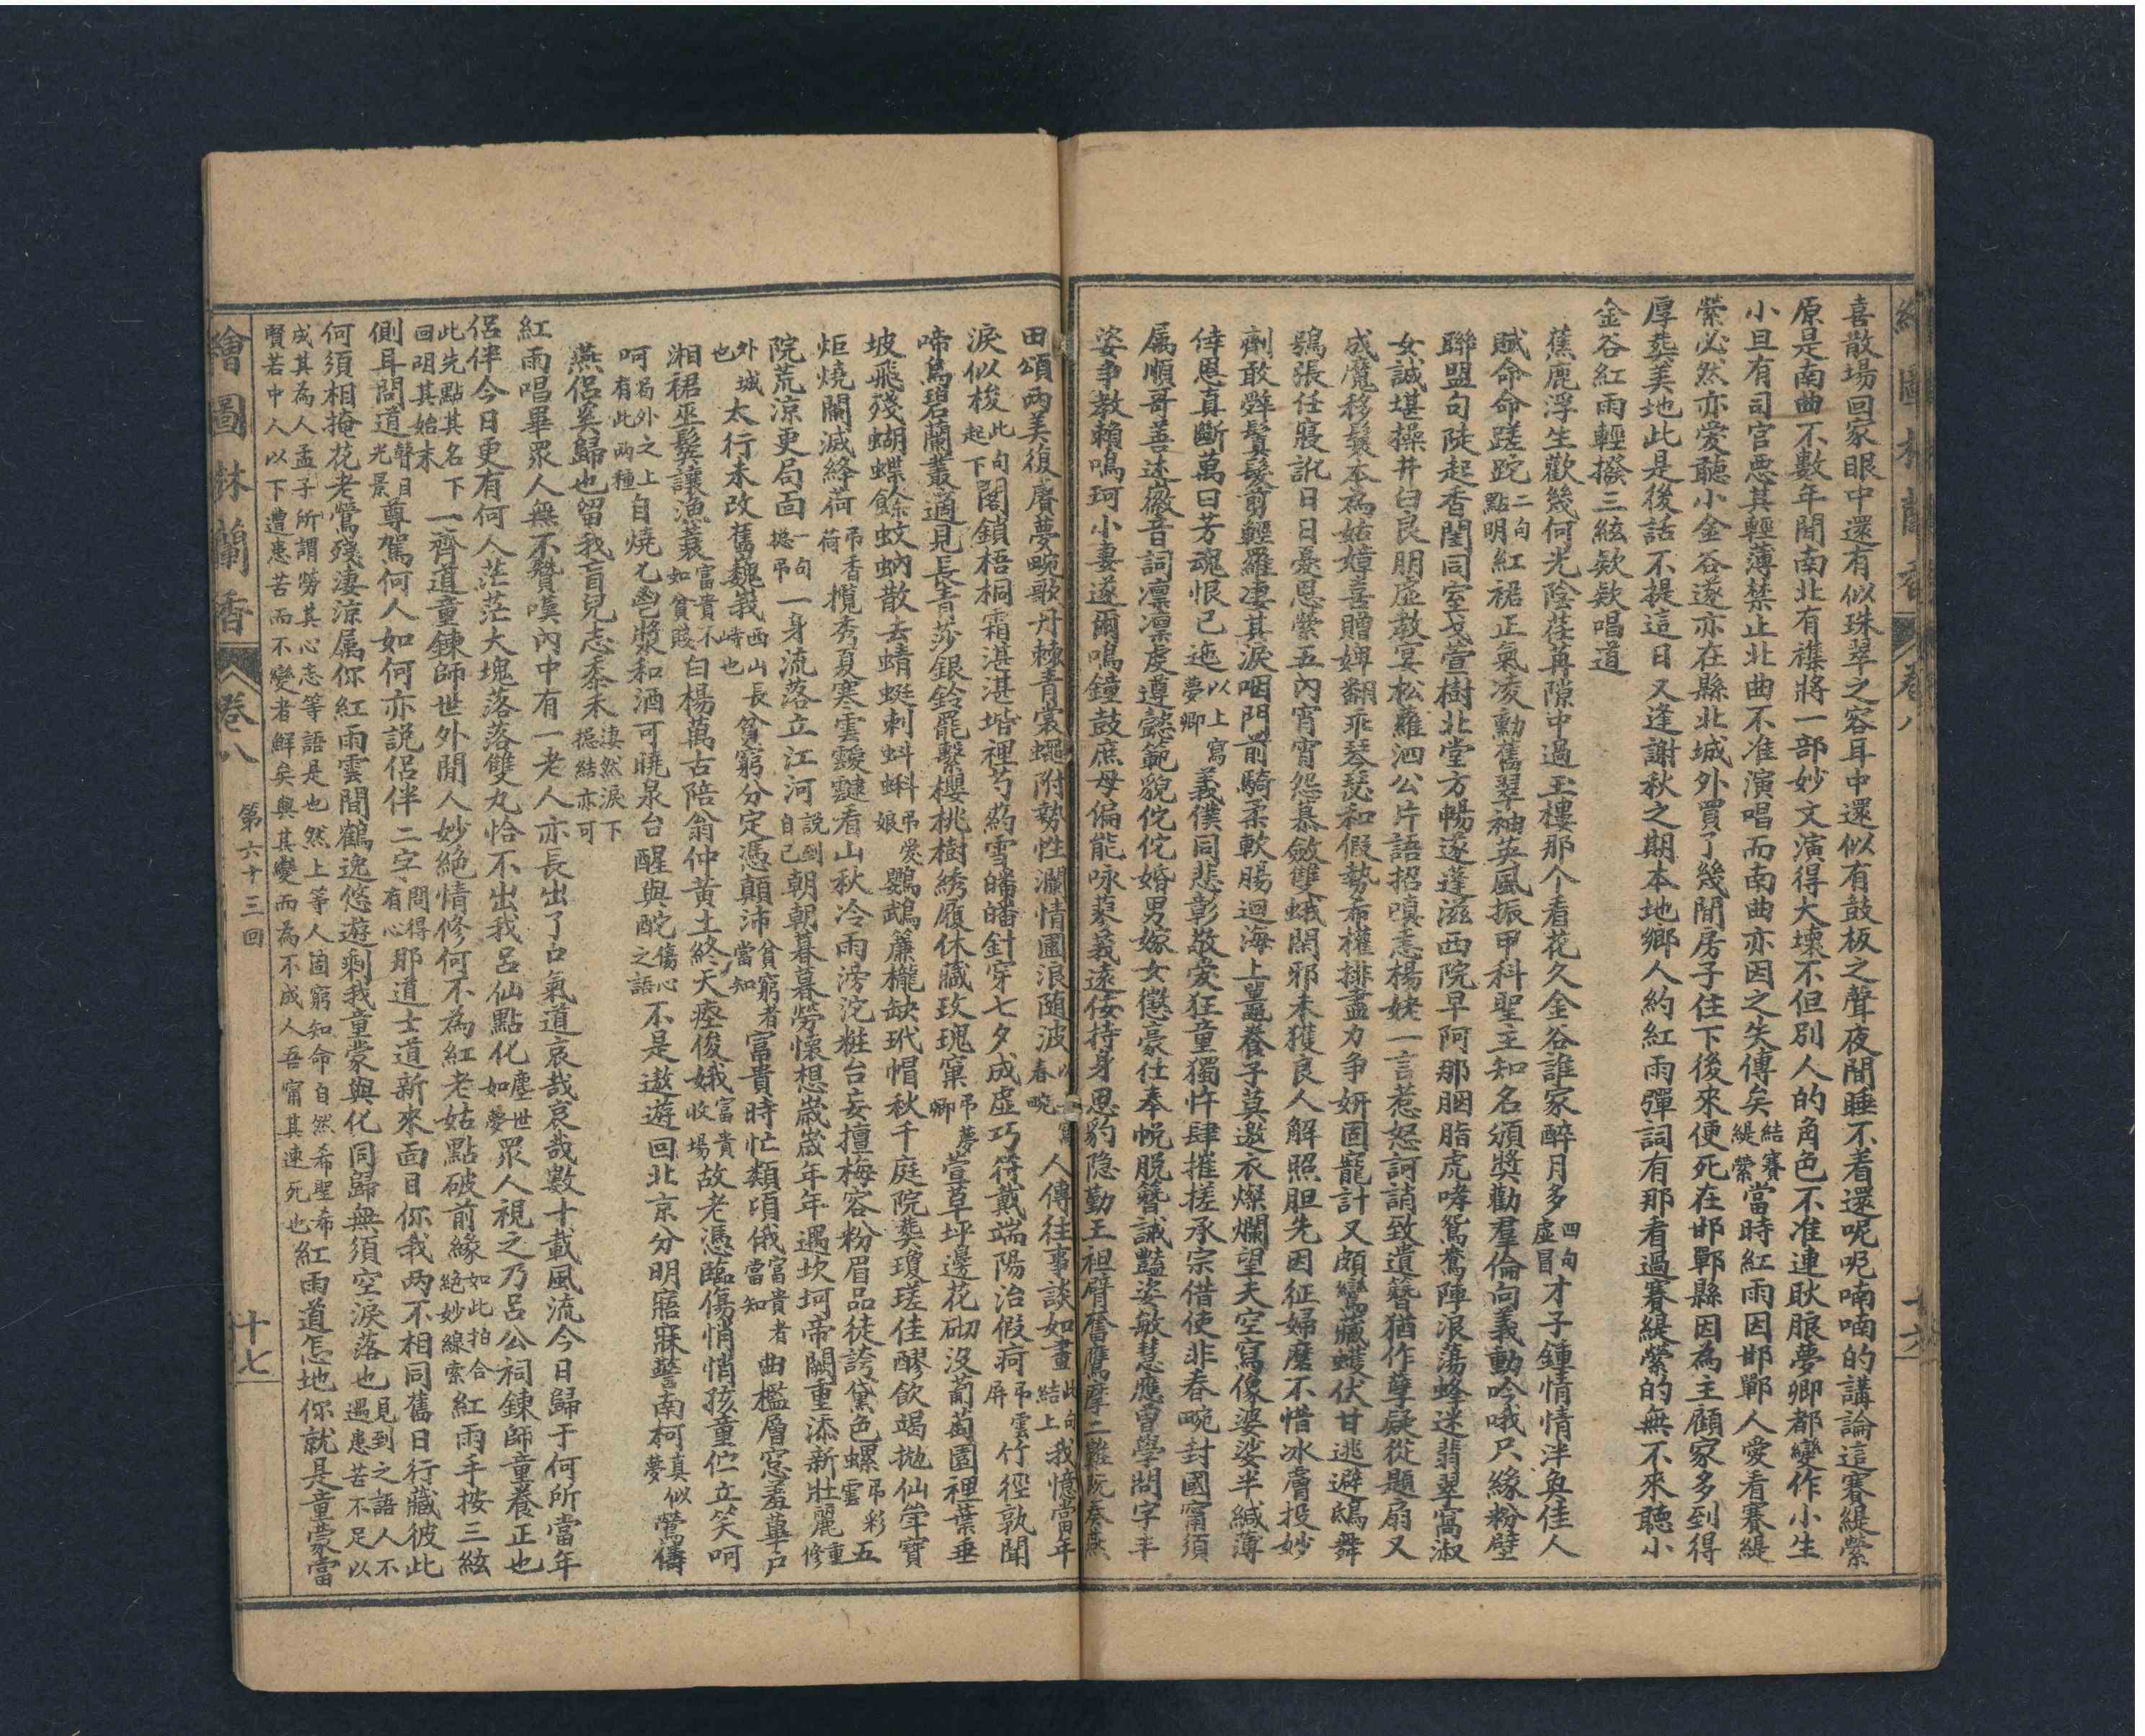 喜散場回家眼中還有似珠翠之容耳中還似有鼓板之聲夜間睡不着還呢呢喃喃的講論這賽緹縈
原是南曲不數年間南北有襍將一部妙文演得大壞不但別人的角色不准連耿服夢卿都變作小生
小旦有司官惡其輕薄禁止北曲不准演唱而南曲亦因之失傳矣結賽緹縈當時紅雨因邯鄲人愛看賽緹
縈必然亦愛聽小金谷遂亦在縣北城外買了幾間房子住下後來便死在邯鄲縣因為主顧家多到得
厚葬美地此是後話不提這日又逢謝秋之期本地鄉人約紅雨彈詞有那看過賽緹縈的無不來聽小
金谷紅雨輕撥三絃欸欸唱道
蕉鹿浮生歡幾何光陰荏苒隙中過玉樓那个看花久金谷誰家醉月多四句虛冒才子鍾情情泮奐佳人
賦命命蹉跎二句點明紅裙正氣凌勳舊翠袖英風振甲科聖主知名頒獎勸羣倫向義動吟哦尺緣粉壁
聯盟句陡起香閨同室戈萱樹北堂方暢遂蓬滋西院早阿那胭脂虎哮鴛鴦陣浪蕩蜂迷翡翠窩淑
女誠堪操井臼良朋虛教宴松蘿泗公片語招嗔恚楊姥一言惹怒訶誚致遺簪猶作孽疑從題扇又
成魔移鬟本為姑嫜喜贈婢翻乖琴瑟和假勢希權排盡力争妍固寵計又頗鸞藏蠖伏甘逃避鴟舞
鴞張任寢訛日日憂思縈五內宵宵怨慕斂雙蛾閑邪未獲良人解照胆先因征婦磨不惜冰膚投妙
劑敢辭鬒髮剪輕羅凄其淚咽門前騎柔軟腸迴海上鼍養子莫邀衣燦爛望夫空寫像婆娑半緘薄
倖恩真斷萬日芳魂恨已迤以上寫夢卿義僕同悲彰敬愛狂童獨忤肆摧搓承宗借使非春畹封國甯須
屬順哥善述徽音詞凛凛虔遵懿範貌佗佗婚男嫁女懲豪仕奉帨脫簪誡豔姿敏慧應曾學問字丰
姿争教賴鳴珂小妻遂爾鳴鐘鼓庶母偏能咏蓼義遠佞持身思豹隐勤王袒臂奮鷹摩二難既奏燕
田頌兩美復賡夢畹歌丹棘青裳蠅附勢性瀾情圃浪随波以上寫春畹人傳往事談如畫此句結上我憶當年
淚似梭此句起下閣鎖梧桐霜湛湛堦裡芍葯雪皤皤針穿七夕成虛巧符戴端陽治假疴吊雲屏竹徑孰聞
啼鳥碧蘭叢適見長青莎銀鈴罷擊櫻桃樹綉履休藏玫瑰窠吊夢卿萱草坪邊花砌沒葡萄園裡葉垂
坡飛殘蝴蝶餘蚊蚋散去蜻蜓剩蚪蝌吊爱娘鸚鵡簾櫳缺玳帽秋千庭院葬瓊瑳佳醪飲竭抛仙罍寶
炬燒闌滅絳荷吊香荷欖秀夏寒雲靉靆看山秋冷雨滂沱粧台妄擅梅容粉眉品徒誇黛色螺吊彩雲五
院荒涼更局面一句摠吊一身流落立江河説到自己朝朝暮暮勞懷想歲歲年年遇坎坷帝闕重添新壯麗重修
外城也太行未改舊巍峩西山峙也長貧窮分定憑顛沛貧窮者當知富貴時忙類頃俄富貴者當知曲檻層窓羞蓽户
湘裙巫髮讓漁蓑富貴不如貧賤白楊萬古陪翁仲黄土終天瘞俊娥富貴收場故老憑臨傷悄悄孩童伫立笑呵
呵局外之上有此兩種自燒乞匃漿和酒可曉泉台醒與酡傷心之語不是遨遊回北京分明寤寐警南柯真似夢鶯儔
燕侣奚歸也留我盲兒志黍禾淒然淚下摠結亦可
紅雨唱畢眾人無不贊嘆內中有一老人亦長出了口氣道哀哉哀哉數十載風流今日歸于何所當年
侶伴今日更有何人茫茫大塊落落雙丸恰不出我呂仙點化塵世如夢眾人視之乃呂公祠鍊師童養正也
此先點其名下回明其始末一齊道童鍊師世外閒人妙絕情修何不為紅老姑點破前緣如此拍合絕妙線索紅雨手按三絃
側耳問道瞽目光景尊駕何人如何亦説侶伴二字問得有心那道士道新來面目你我兩不相同舊日行藏彼此
何須相掩花老鶯殘淒涼屬你紅雨雲間鶴逸悠遊剩我童蒙與化同歸無須空淚落也見到之語人不遇患苦不足以
成其為人孟子所謂勞其心志等語是也然上等人固窮知命自然希聖希賢若中人以下遭患苦而不變者鮮矣與其變而為不成人吾甯其連死也紅雨道怎地你就是童蒙當
繪圖林蘭香
卷八
第六十三回
十七